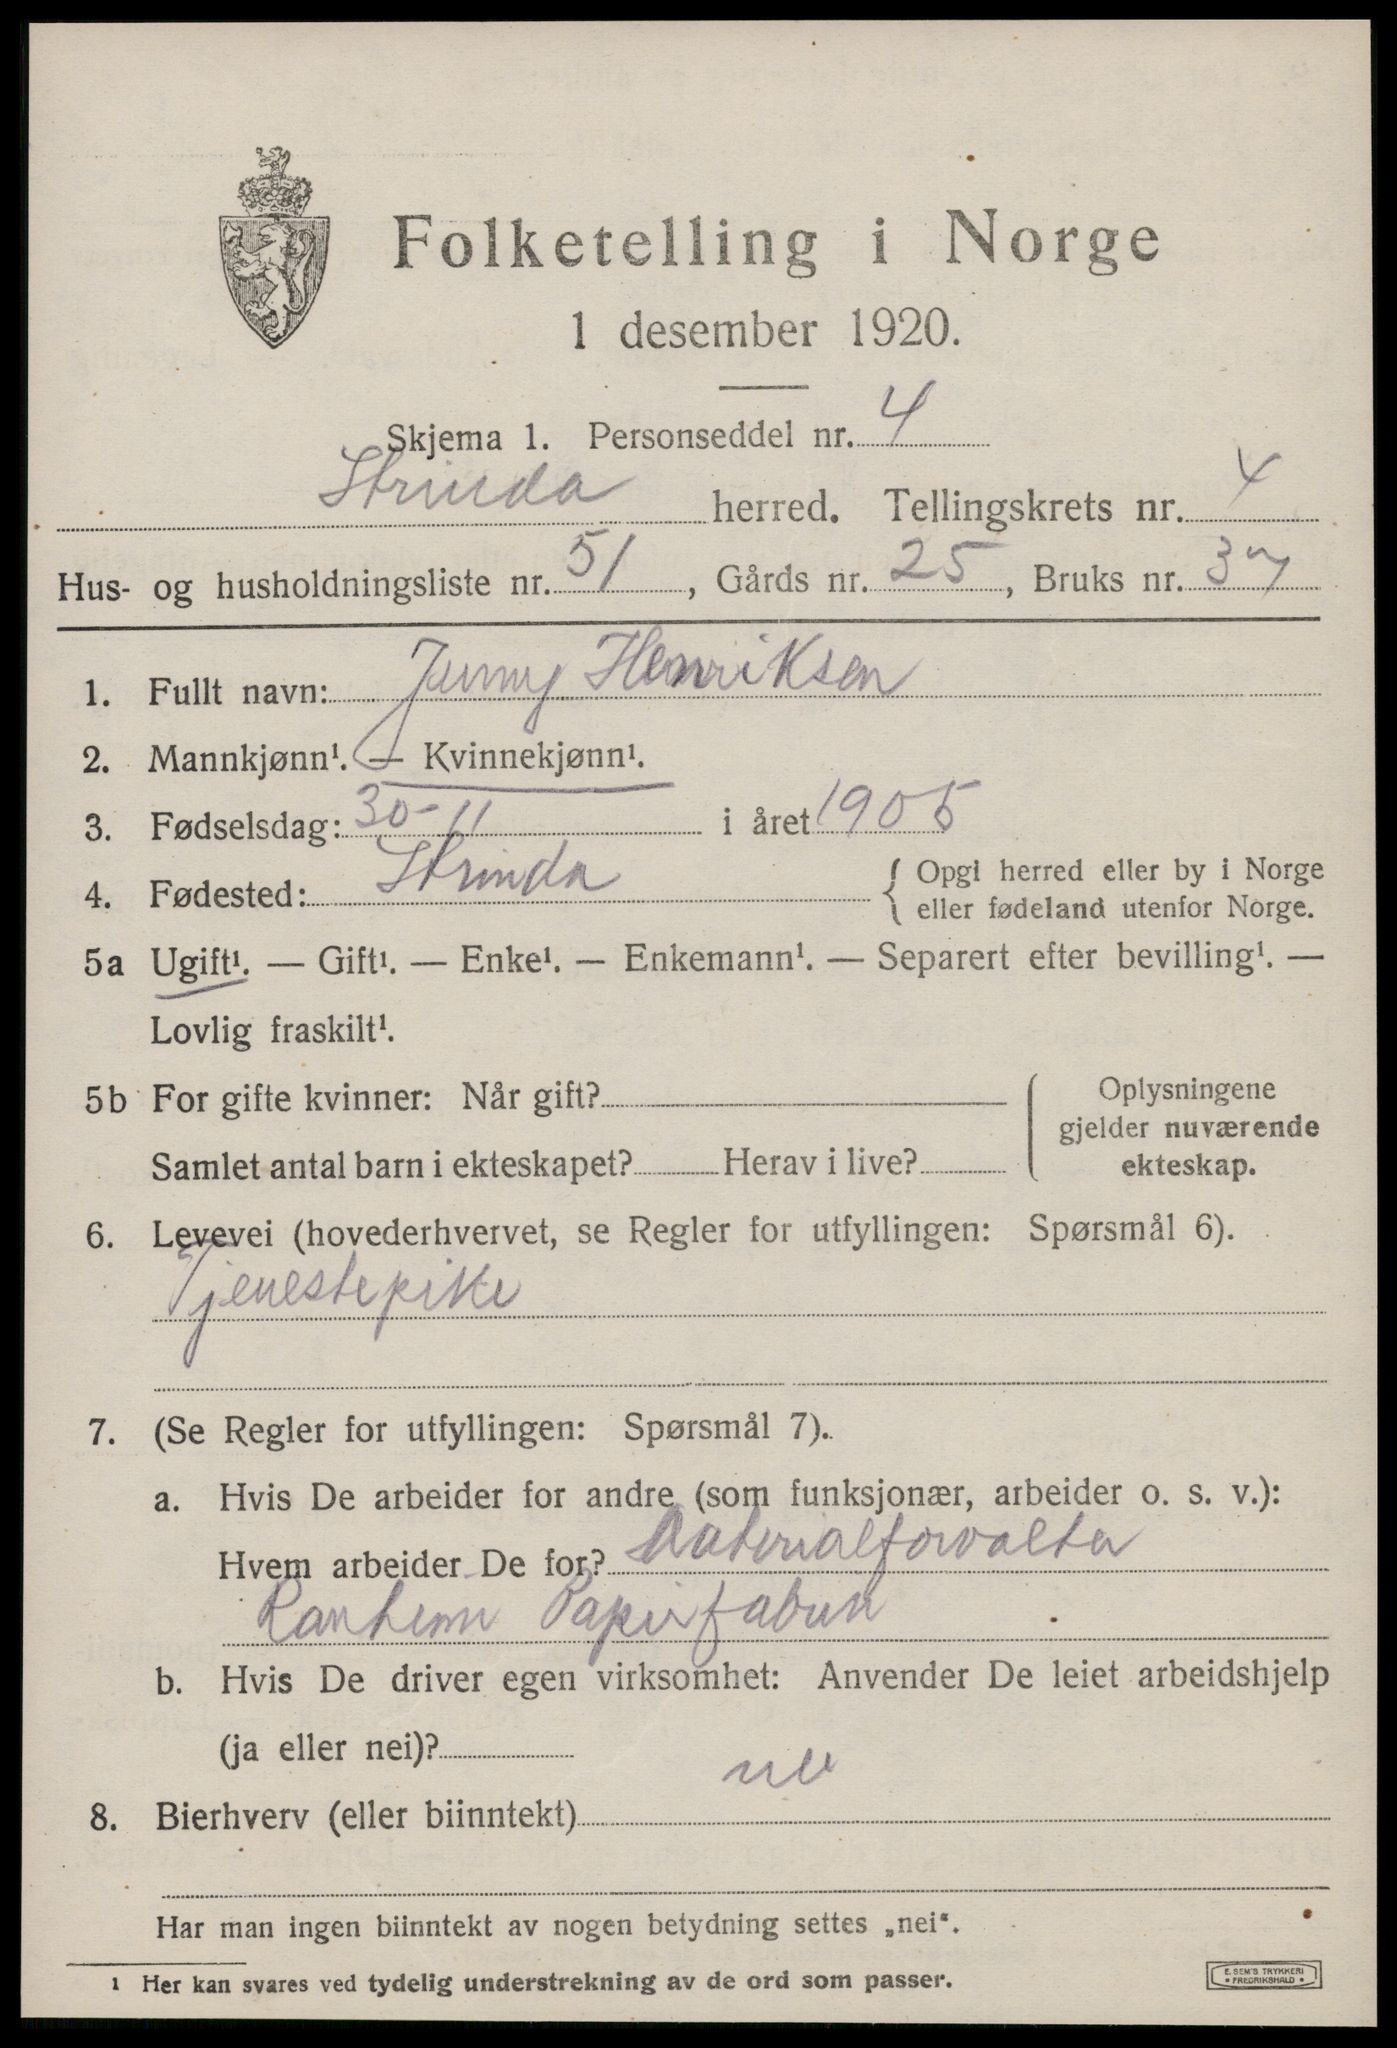 Folketelling i Norge
1 desember 1920.
Skjema 1. Personseddel nr. 4
Strinda herred. Tellingskrets nr. 4
Hus- og husholdningsliste nr. 51, Gårds nr. 25, Bruks nr. 37
1. Fullt navn: Jenny Henriksen
2. Mannkjønn¹. — Kvinnekjønn¹.
3. Fødselsdag: 30-11 i året 1905
4. Fødested: Strinda { Opgi herred eller by i Norge
eller fødeland utenfor Norge.
5a Ugift¹. — Gift¹. — Enke¹. — Enkemann¹. — Separert efter bevilling¹. —
Lovlig fraskilt¹.
5b For gifte kvinner: Når gift?
Samlet antal barn i ekteskapet? Herav i live?
Oplysningene
gjelder nuværende
ekteskap.
6. Levevei (hovederhvervet, se Regler for utfyllingen: Spørsmål 6).
Tjenestepike
7. (Se Regler for utfyllingen: Spørsmål 7).
a. Hvis De arbeider for andre (som funksjonær, arbeider o. s. v.):
Hvem arbeider De for? Materialforvalter
Ranheim Papirfabrik
b. Hvis De driver egen virksomhet: Anvender De leiet arbeidshjelp
(ja eller nei)?
8. Bierhverv (eller biinntekt) nei
Har man ingen biinntekt av nogen betydning settes „nei“.
¹ Her kan svares ved tydelig understrekning av de ord som passer.
E. SEM'S TRYKKERI
• FREDRIKSHALD •